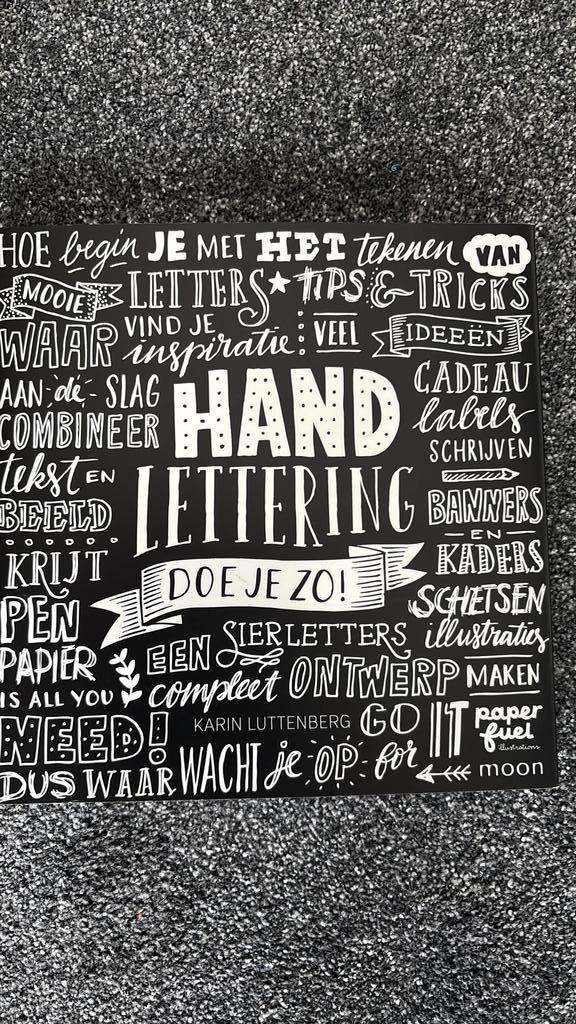 HOE begin JE MET HET tekenen VAN
MOOIE LETTERS TIPS & TRICKS
WAAR VIND JE inspiratie: VEEL IDEEËN
AAN de SLAG
COMBINEER
tekst EN
BEELD
KRIJT
PEN
PAPIER
IS ALL YOU
NEED!
HAND
LETTERING
DOE JE ZO!
CADEAU
labels
SCHRIJVEN
BANNERS
EN
KADERS
SCHETSEN
illustraties
MAKEN
EEN SIERLETTERS
compleet ONTWERP
KARIN LUTTENBERG
GO FOR IT
paper
fuel
illustrations
DUS WAAR WACHT je OP
moon